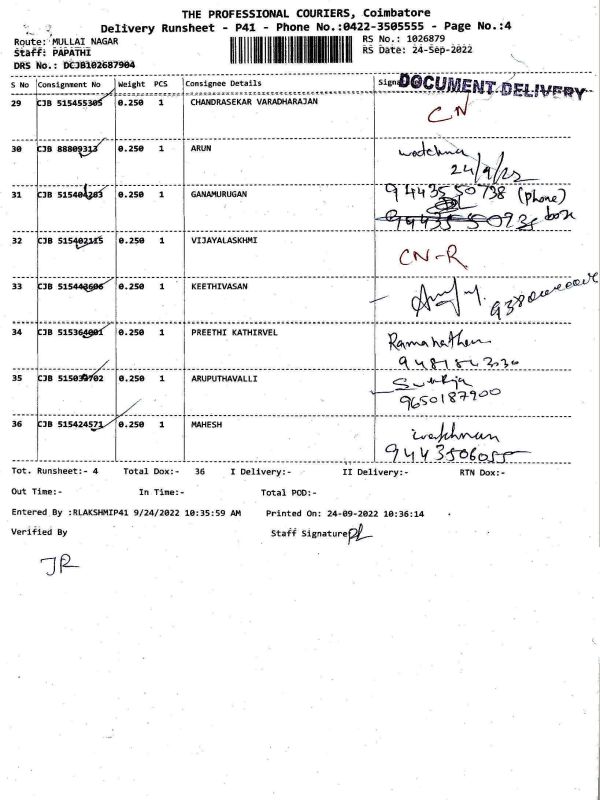 THE PROFESSIONAL COURIERS, Coimbatore
Delivery Runsheet - P41 - Phone No.:0422-3505555 - Page No.:4
Route: MULLAI NAGAR RS No.: 1026879
Staff: PAPATHI RS Date: 24-Sep-2022
DRS No.: DCJB102687904
S No Consignment No Weight PCS Consignee Details DOCUMENT DELIVERY
29 CJB 515455305 0.250 1 CHANDRASEKAR VARADHARAJAN CN
30 CJB 88809313 0.250 1 ARUN watchman
24/9/22
31 CJB 515404203 0.250 1 GANAMURUGAN 9443550738 (phone)
box
32 CJB 515402115 0.250 1 VIJAYALASKHMI CN-R
33 CJB 515443606 0.250 1 KEETHIVASAN
34 CJB 515364001 0.250 1 PREETHI KATHIRVEL Ramanathan
35 CJB 0.250 1 ARUPUTHAVALLI
9650187900
36 CJB 515424571 0.250 1 MAHESH
9443506055
Tot. Runsheet:- 4 Total Dox:- 36 I Delivery:- II Delivery:- RTN Dox:-
Out Time:- In Time:- Total POD:-
Entered By :RLAKSHMIP41 9/24/2022 10:35:59 AM Printed On: 24-09-2022 10:36:14
Verified By Staff Signature
JR